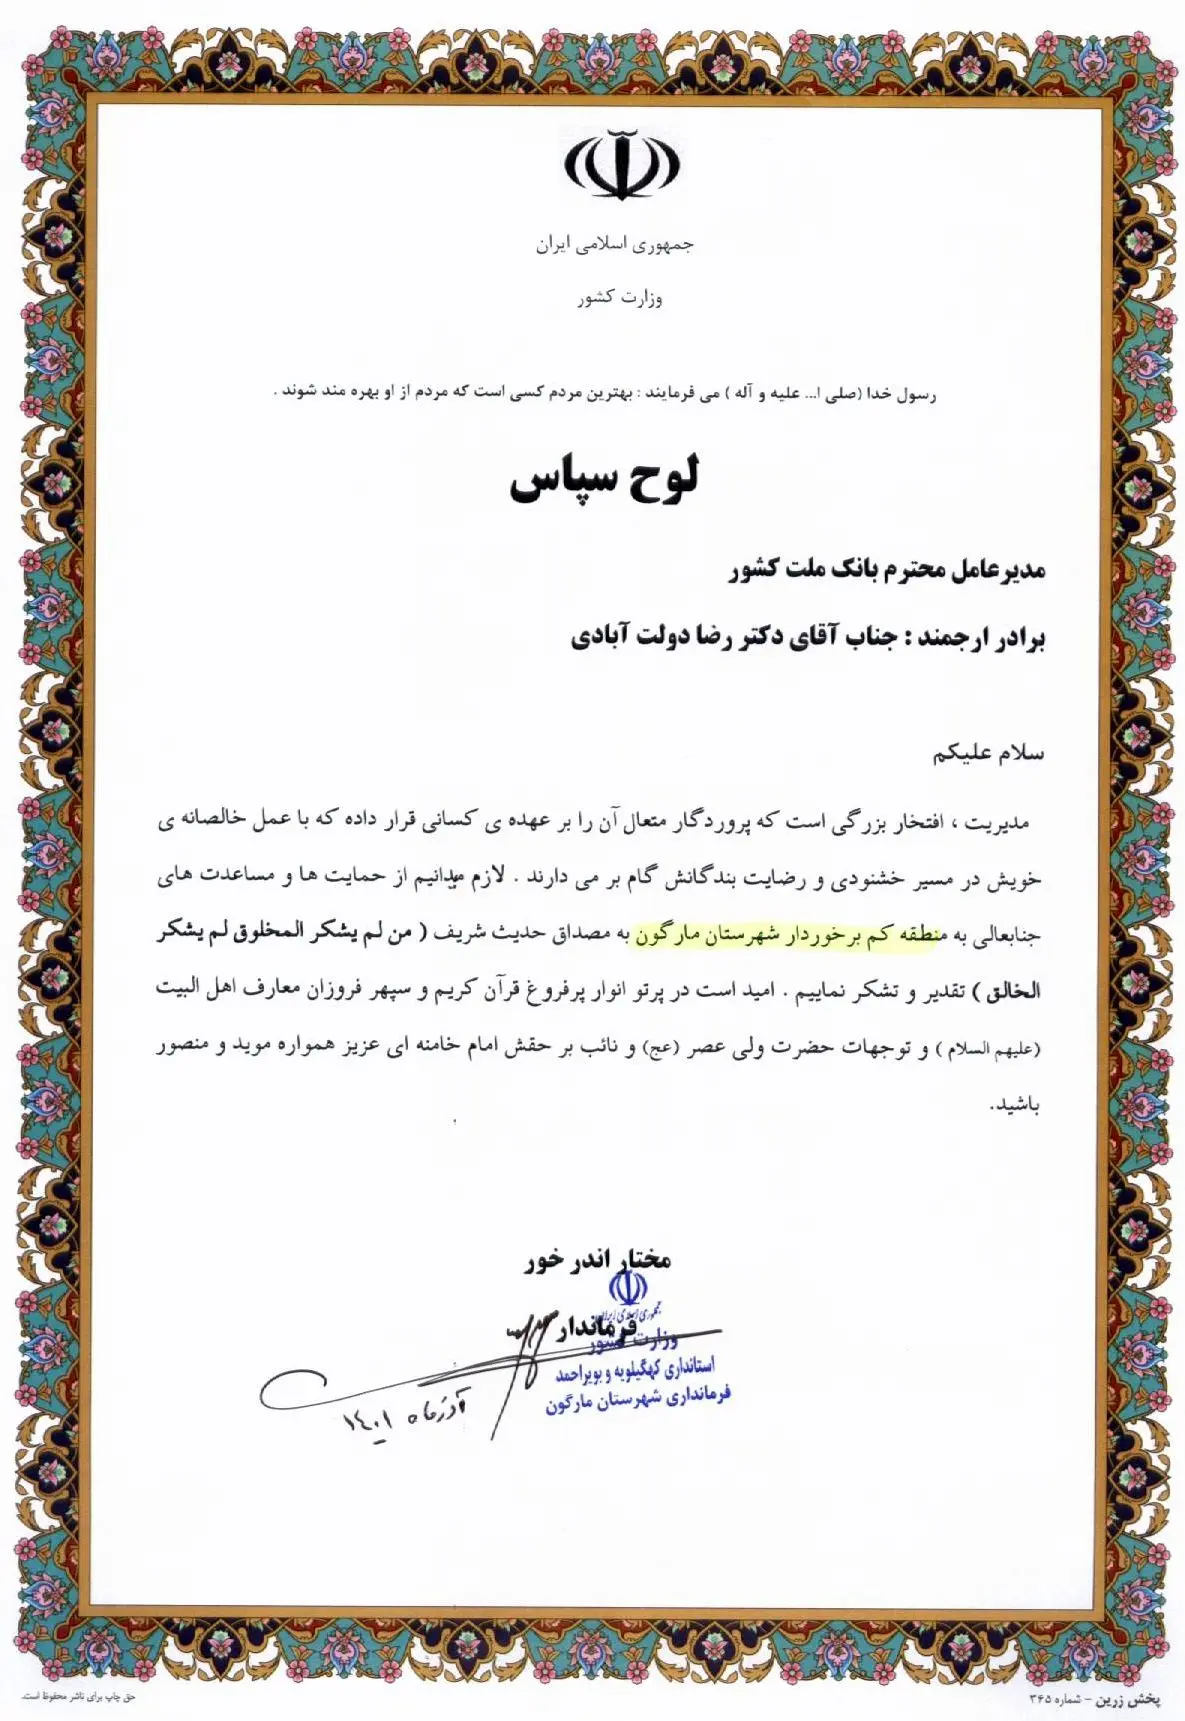 جمهوری اسلامی ایران
وزارت کشور
رسول خدا (صلی ا... علیه و آله ) می فرمایند : بهترین مردم کسی است که مردم از او بهره مند شوند .
لوح سپاس
مدیرعامل محترم بانک ملت کشور
برادر ارجمند : جناب آقای دکتر رضا دولت آبادی
سلام علیکم
مدیریت ، افتخار بزرگی است که پروردگار متعال آن را بر عهده ی کسانی قرار داده که با عمل خالصانه ی
خویش در مسیر خشنودی و رضایت بندگانش گام بر می دارند . لازم میدانیم از حمایت ها و مساعدت های
جنابعالی به منطقه کم برخوردار شهرستان مارگون به مصداق حدیث شریف ( من لم یشکر المخلوق لم یشکر
الخالق ) تقدیر و تشکر نماییم . امید است در پرتو انوار پرفروغ قرآن کریم و سپهر فروزان معارف اهل البیت
(علیهم السلام ) و توجهات حضرت ولی عصر (عج) و نائب بر حقش امام خامنه ای عزیز همواره موید و منصور
باشید.
مختار اندر خور
جمهوری اسلامی ایران
فرماندار
وزارت کشور
استانداری کهگیلویه و بویراحمد
فرمانداری شهرستان مارگون
آذرماه ۱۴۰۱
پخش زرین – شماره ۳۶۵
حق چاپ برای ناشر محفوظ است.